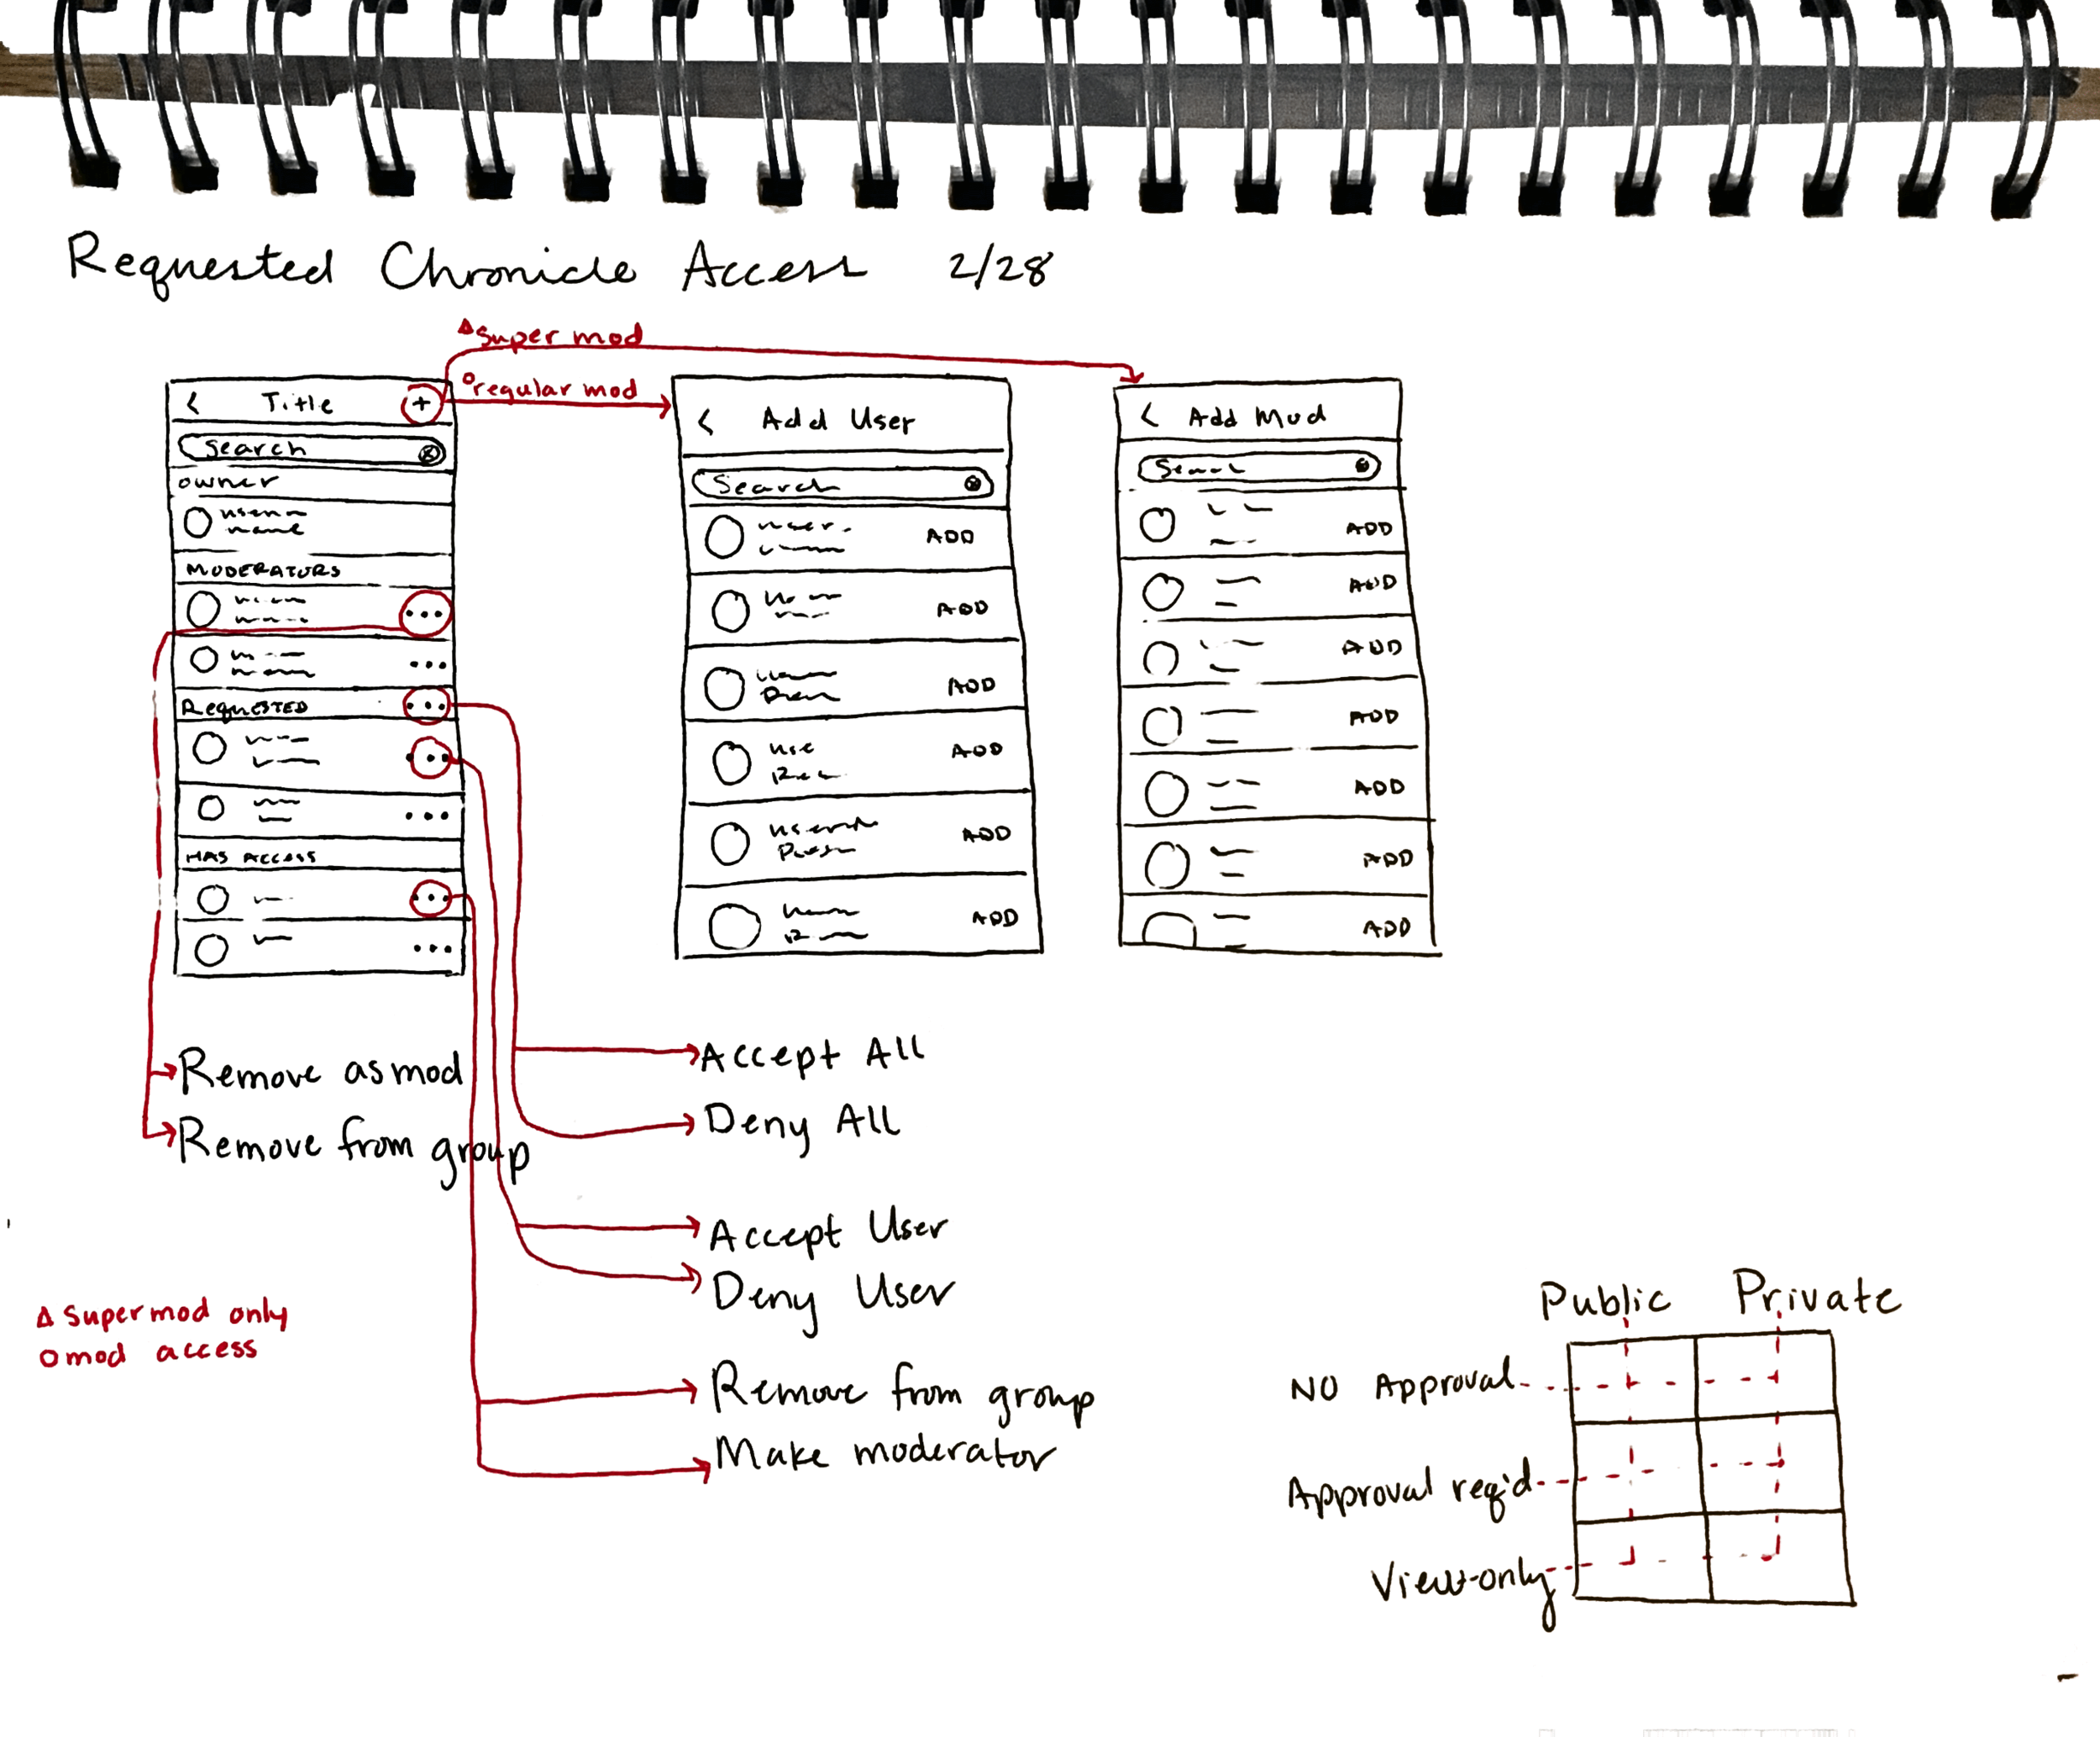 Requested Chronicle Access 2/28
Δ super mod
o regular mod
< Title +
Search
owner
name
MODERATORS
REQUESTED
HAS ACCESS
< Add User
Search
ADD
ADD
ADD
use ADD
ADD
ADD
< Add Mod
ADD
ADD
ADD
ADD
ADD
ADD
ADD
Remove as mod
Remove from group
Accept All
Deny All
Accept User
Deny User
Remove from group
Make moderator
Δ supermod only
o mod access
Public Private
NO Approval
Approval req'd
View-only